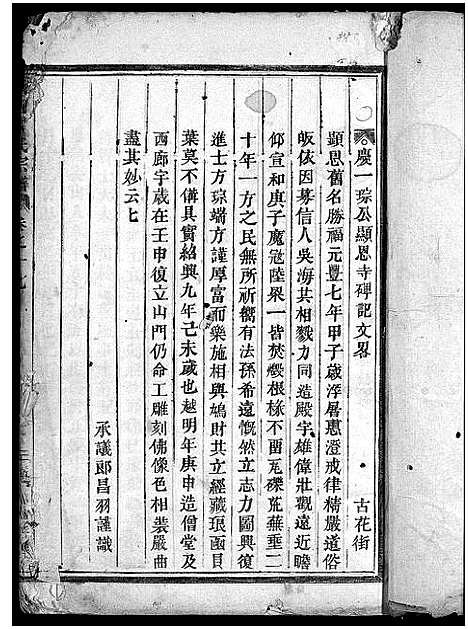 慶一琮公顯恩寺碑記文畧
古花街
顯恩舊名勝福元豐七年甲子歲浮屠惠澄戒律精嚴道俗
皈依因募信人吳海其相戮力同造殿宇雄偉壯觀遠近瞻
仰宣和庚子魔寇陸梁一皆焚燬根椽不畱瓦礫荒蕪垂二
十年一方之民無所祈嚮有法孫希遠慨然立志力圖興復
進士方琮端方謹厚富而樂施相與鳩財共立經藏琅函貝
葉莫不備具實紹興九年己未歲也越明年庚申造僧堂及
西廊宇歲在壬申復立山門仍命工雕刻佛像色相裝嚴曲
盡其妙云七
承議郎昌羽謹識